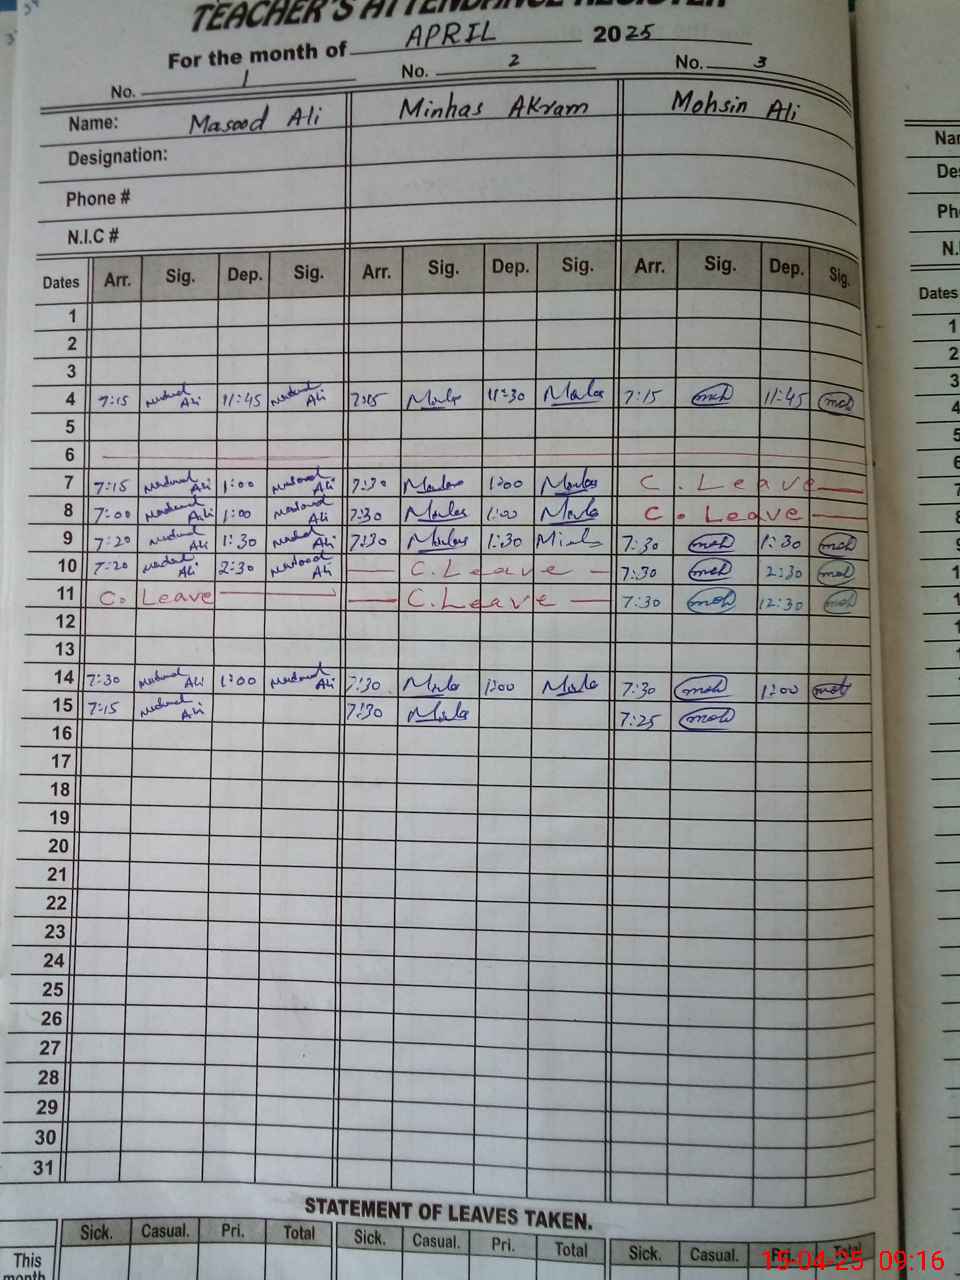 TEACHER'S ATTENDANCE REGISTER
For the month of APRIL 2025
No. 1 No. 2 No. 3
Name: Masood Ali Minhas Akram Mohsin Ali
Designation:
Phone #
N.I.C #
Dates Arr. Sig. Dep. Sig. Arr. Sig. Dep. Sig. Arr. Sig. Dep. Sig.
1
2
3
4 7:15 Ali 11:45 Ali 7:15 11:30 7:15 moh 11:45 moh
5
6
7 7:15 Ali 1:00 Masood Ali 7:30 1:00 C. Leave
8 7:00 Ali 1:00 Masood Ali 7:30 1:00 C. Leave
9 7:20 Ali 1:30 Ali 7:30 1:30 7:30 moh 1:30 moh
10 7:20 Ali 2:30 Masood Ali C. Leave 7:30 moh 2:30 moh
11 C. Leave C. Leave 7:30 moh 12:30 moh
12
13
14 7:30 Ali 1:00 Ali 7:30 1:00 7:30 moh 1:00 moh
15 7:15 Ali 7:30 7:25 moh
16
17
18
19
20
21
22
23
24
25
26
27
28
29
30
31
STATEMENT OF LEAVES TAKEN.
Sick. Casual. Pri. Total Sick. Casual. Pri. Total Sick. Casual. Pri. Total
This
month
15-04-25 09:16
Dates
1
2
3
4
5
6
7
8
9